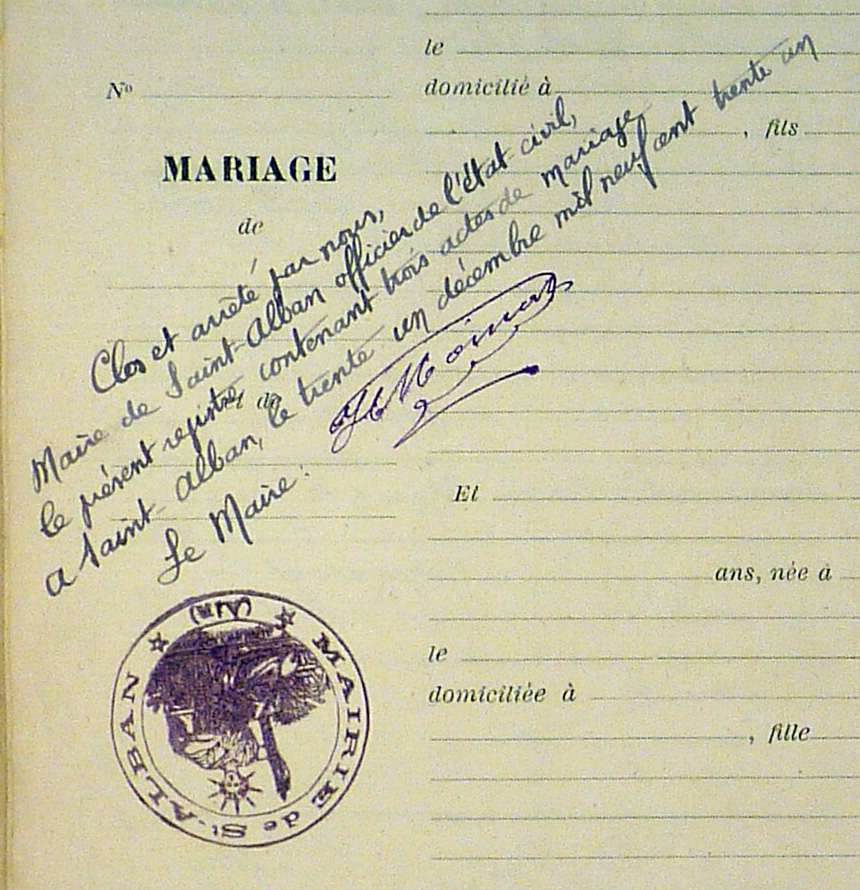 Nº
MARIAGE
de
et de
Clos et arrêté par nous,
Maire de Saint-Alban officier de l'état civil,
le présent registre contenant trois actes de mariage
a Saint-Alban, le trente un décembre mil neuf cent trente un
Le Maire :
MAIRIE de St-ALBAN
(AIN)
le
domicilié à
, fils
Et
ans, née à
le
domiciliée à
, fille